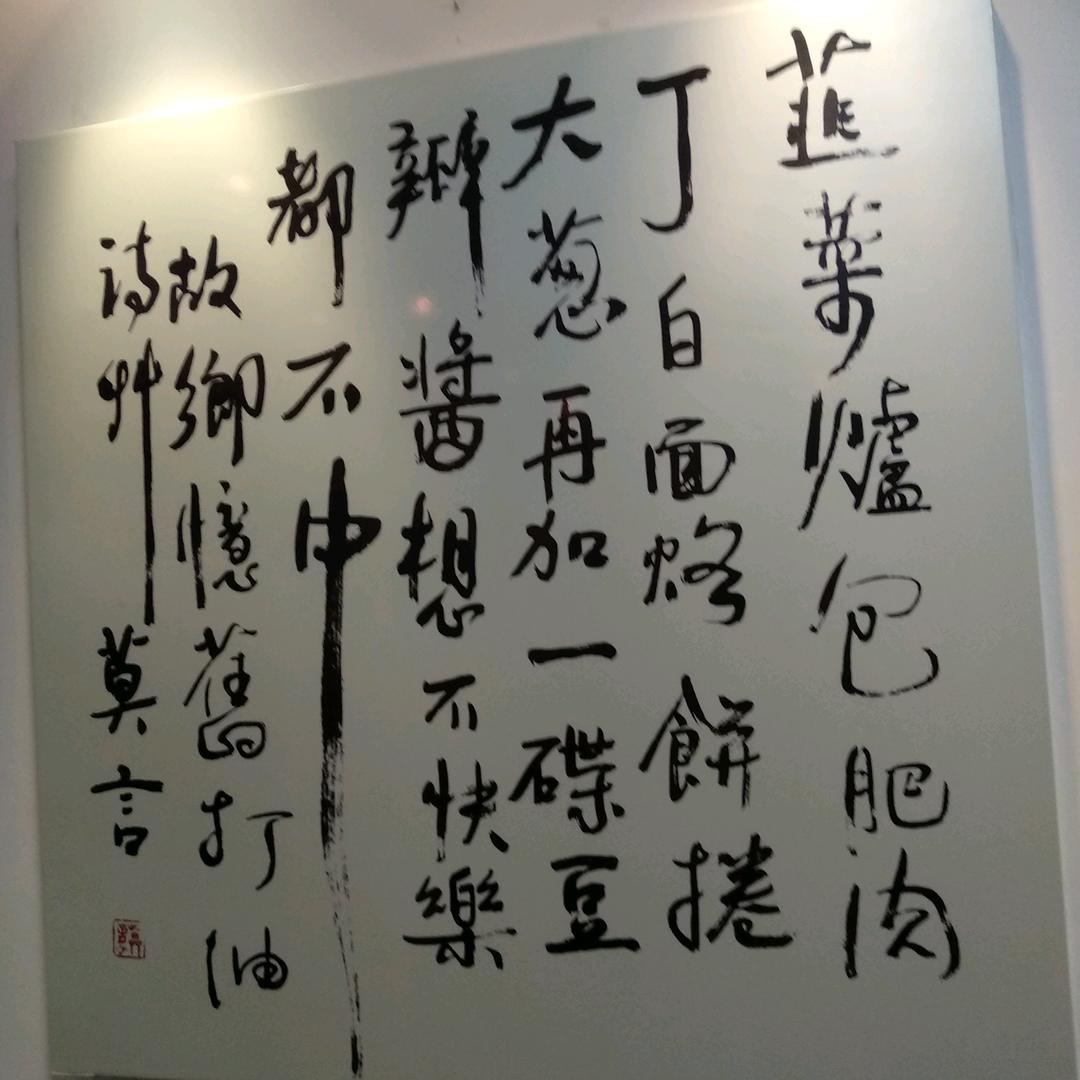 韭菜爐包肥肉
丁白面烙餅捲
大葱再加一碟豆
瓣醬想不快樂
都不中
故鄉憶舊打油
詩艸莫言